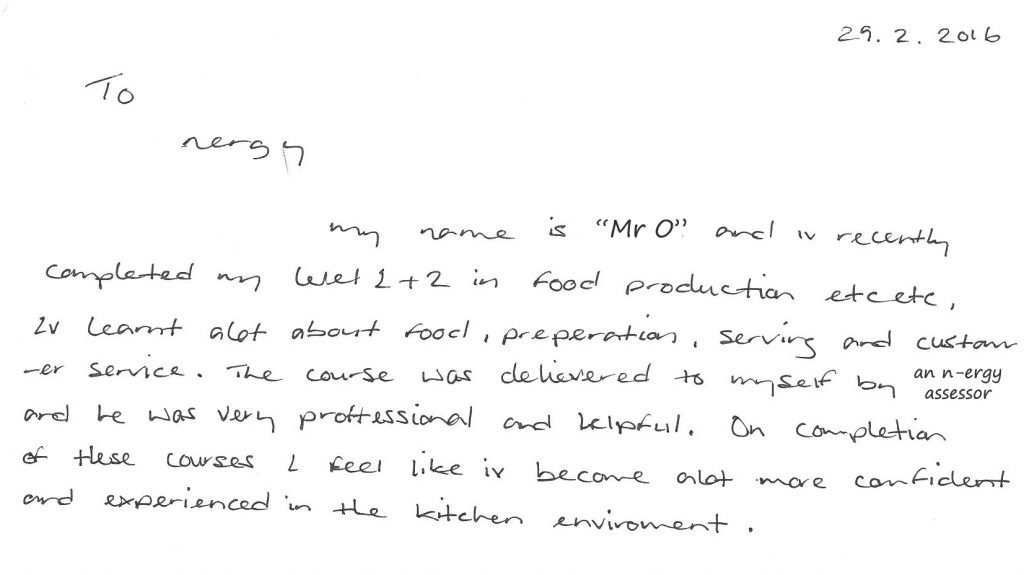 29. 2. 2016
To
nergy
my name is "Mr O" and iv recently
completed my level 1 + 2 in food production etc etc,
Iv learnt alot about food, preperation, serving and custom
-er service. The course was delievered to myself by an n-ergy assessor
and he was very proffessional and helpful. On completion
of these courses I feel like iv become alot more confident
and experienced in the kitchen enviroment.